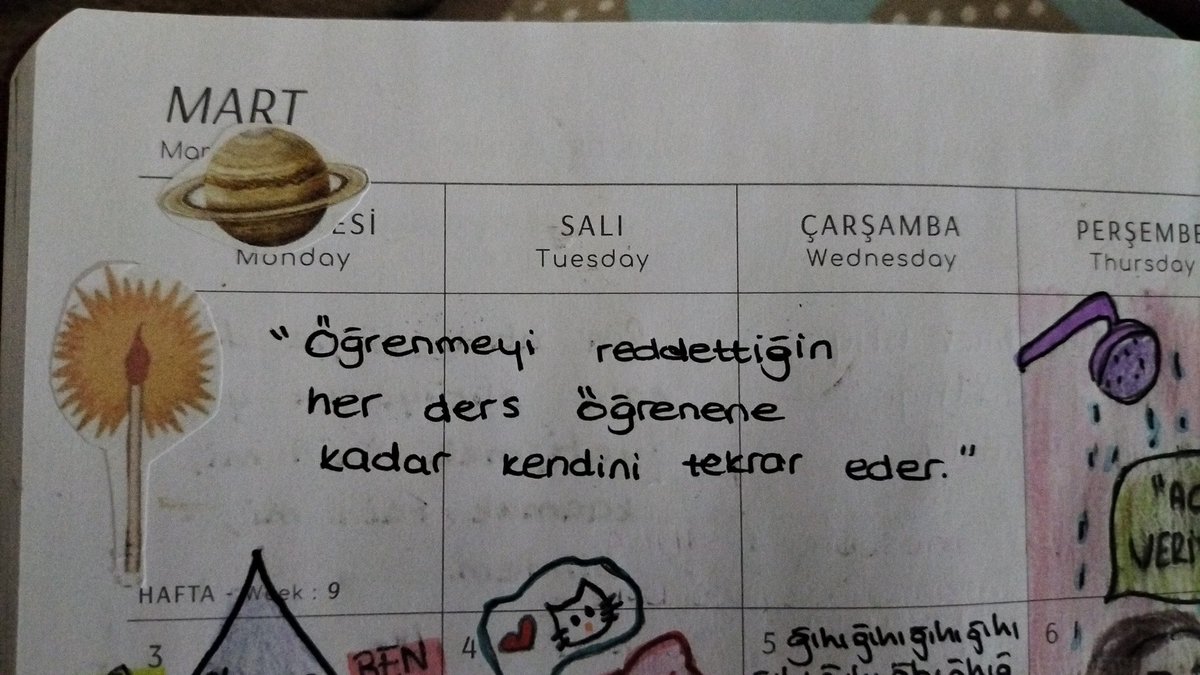 MART
SALI
Tuesday
ÇARŞAMBA
Wednesday
Monday
Thursday
"Öğrenmeyi reddettiğin
her ders öğrenene
kadar kendini tekrar eder."
HAFTA - Week : 9
3
BEN
4
5 ğıhığıhığıhığıhı
6